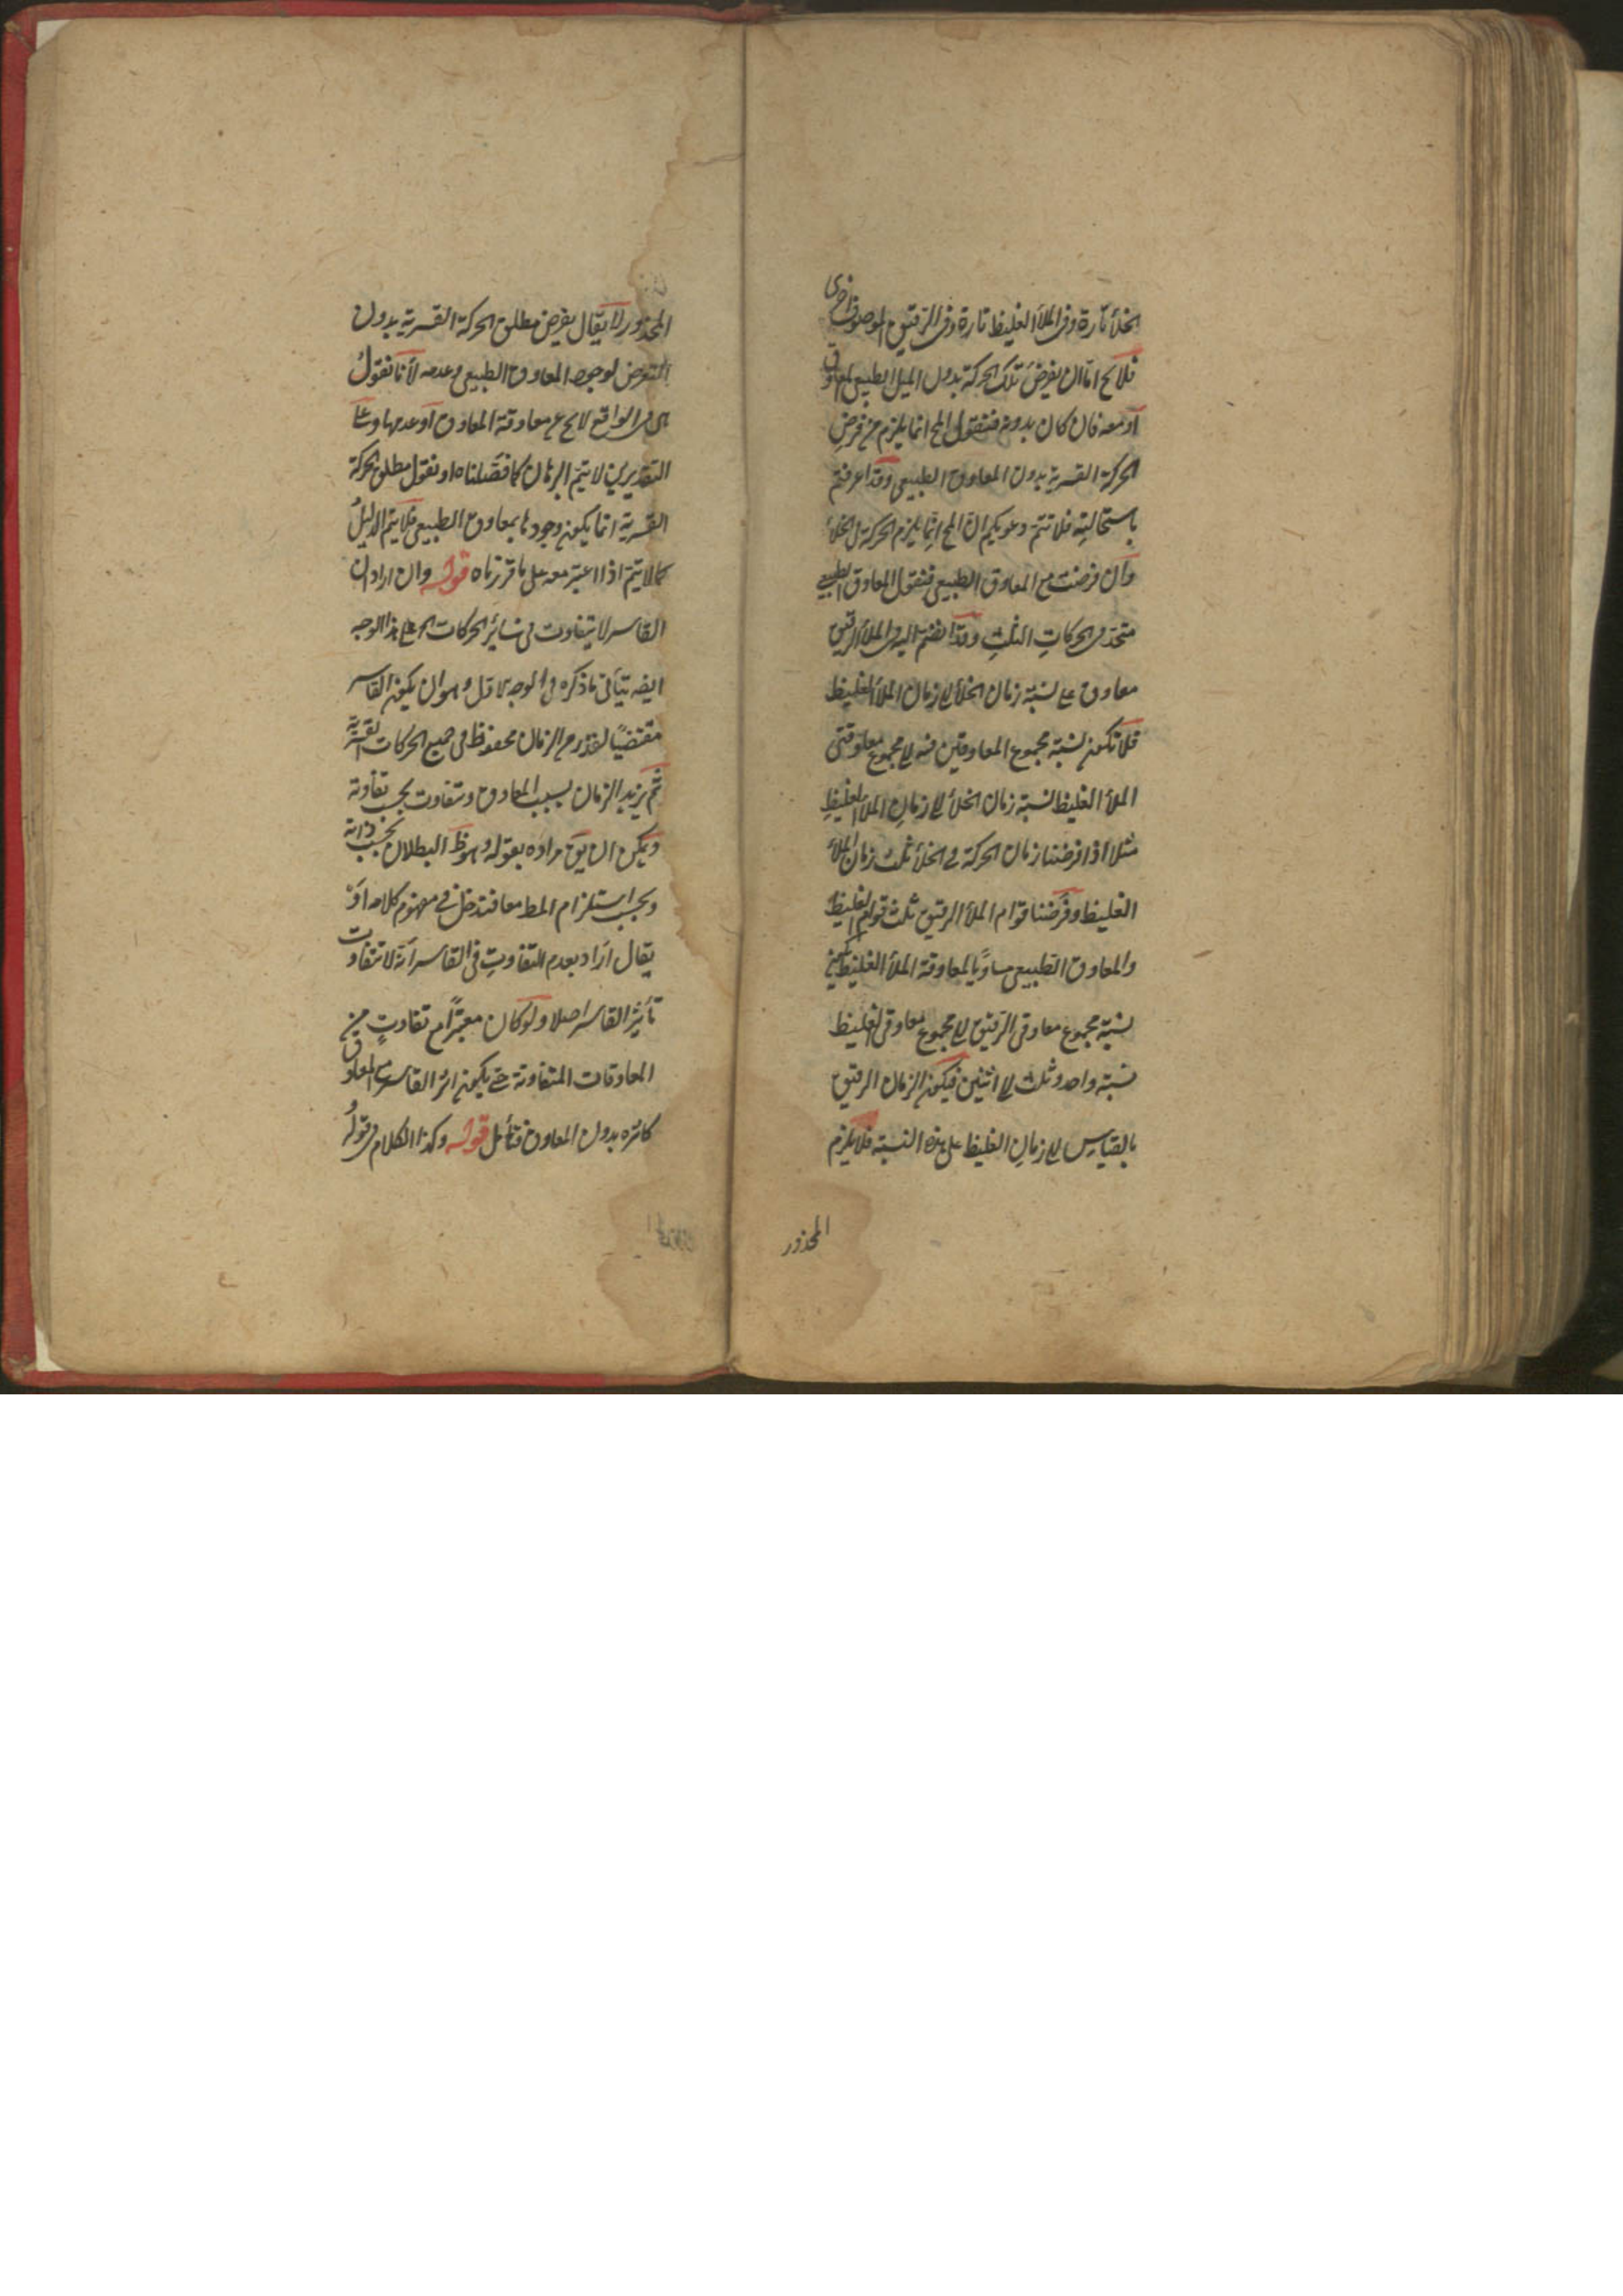 الخلأ تارة وفى الملأ الغليظ تارة وفى الرقيق الموصوف اخرى
فلا يخ اما ان يفرض تلك الحركة بدون الميل الطبيعى المعاوق
او معه فان كان بدونه فنقول المح انما يلزم من فرض
الحركة القسرية بدون المعاوق الطبيعى وقد اعرفتم
باستحالته فلا تتم دعويكم ان المح انما يلزم الحركة فى الخلأ
وان فرضت مع المعاوق الطبيعى فنقول المعاوق الطبيعى
متحد فى الحركات الثلث وقد انضم اليه فى الملأ الرقيق
معاوق على نسبة زمان الخلأ الى زمان الملأ الغليظ
فلا تكون نسبة مجموع المعاوقين فيه الى مجموع معاوقتى
الملأ الغليظ نسبة زمان الخلأ الى زمان الملأ الغليظ
مثلا اذا فرضنا زمان الحركة فى الخلأ ثلث زمان الملأ
الغليظ وفرضنا قوام الملأ الرقيق ثلث قوام الغليظ
والمعاوق الطبيعى مساويا لمعاوقة الملأ الغليظ يكون
نسبة مجموع معاوقى الرقيق الى مجموع معاوقى الغليظ
نسبة واحد وثلث الى اثنين فيكون الزمان الرقيق
بالقياس الى زمان الغليظ على هذه النسبة فلا يلزم
المحذور
المحذور لا يقال يفرض مطلق الحركة القسرية بدون
التعرض لوجود المعاوق الطبيعى وعدمه لأنا نقول
هى فى الواقع لا يخ عن معاوقة المعاوق او عدمها وعلى
التقديرين لا يتم البرهان كما فصلناه او نقول مطلق الحركة
القسرية انما يكون وجودها بمعاوق الطبيعى فلا يتم الدليل
كما لا يتم اذا اعتبر معه على ما قررناه قوله وان اراد ان
القاسر لا يتفاوت فى سائر الحركات الخ على هذا الوجه
ايضه يتأتى ما ذكره فى الوجه الاول وهو ان يكون القاسر
مقتضيا لقدر من الزمان محفوظ فى جميع الحركات القسرية
ثم يزيد الزمان بسبب المعاوق وتتفاوت بحسب تفاوته
ويمكن ان يق مراده بقوله وهو ظ البطلان بحسب ذاته
وبحسب استلزام المط معا فتدخل فى مفهوم كلامه او
يقال اراد بعدم التفاوت فى القاسر انه لا يتفاوت
تأثير القاسر اصلا ولو كان معتبرا مع تفاوت من
المعاوقات المتفاوتة حتى يكون اثر القاسر مع المعاوق
كاثره بدون المعاوق فتأمل قوله وكذا الكلام فى قوله